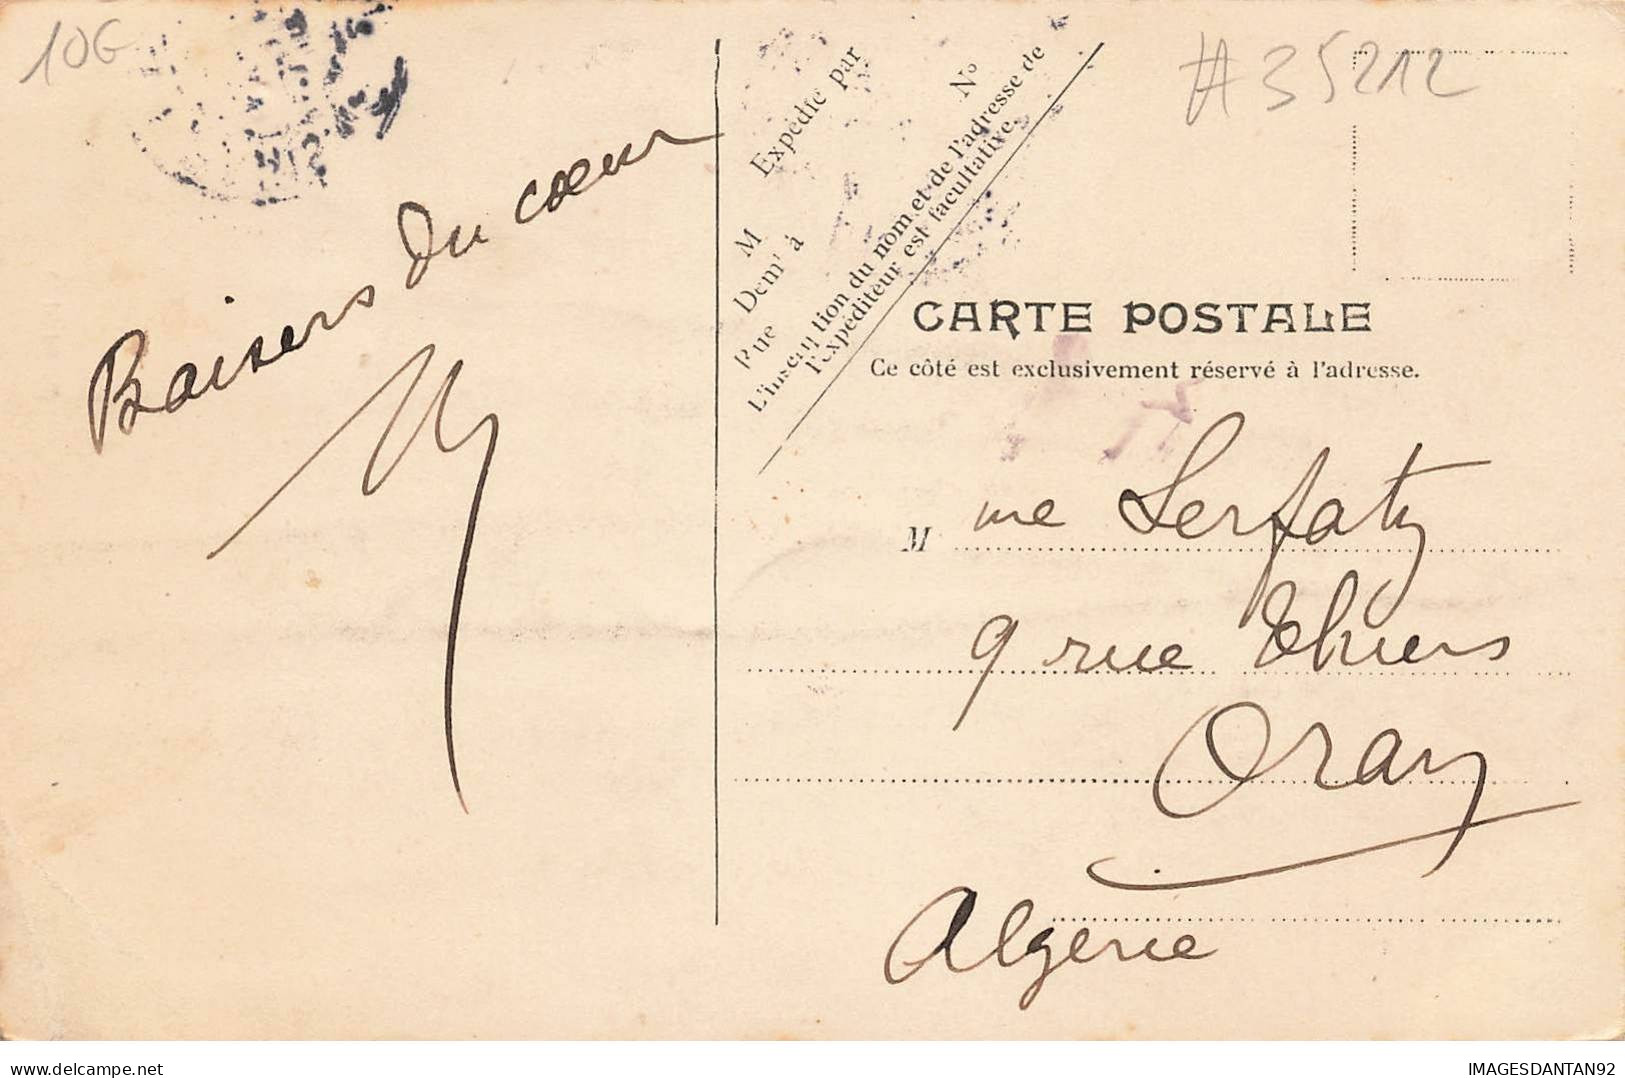 10G
#35212
Baisers du cœur
Expédié par
M
Dem' à
Rue
N°
L'inscription du nom et de l'adresse de
l'expéditeur est facultative.
CARTE POSTALE
Ce côté est exclusivement réservé à l'adresse.
M me Serfaty
9 rue Thiers
Oran
Algérie
IMAGESDANTAN92